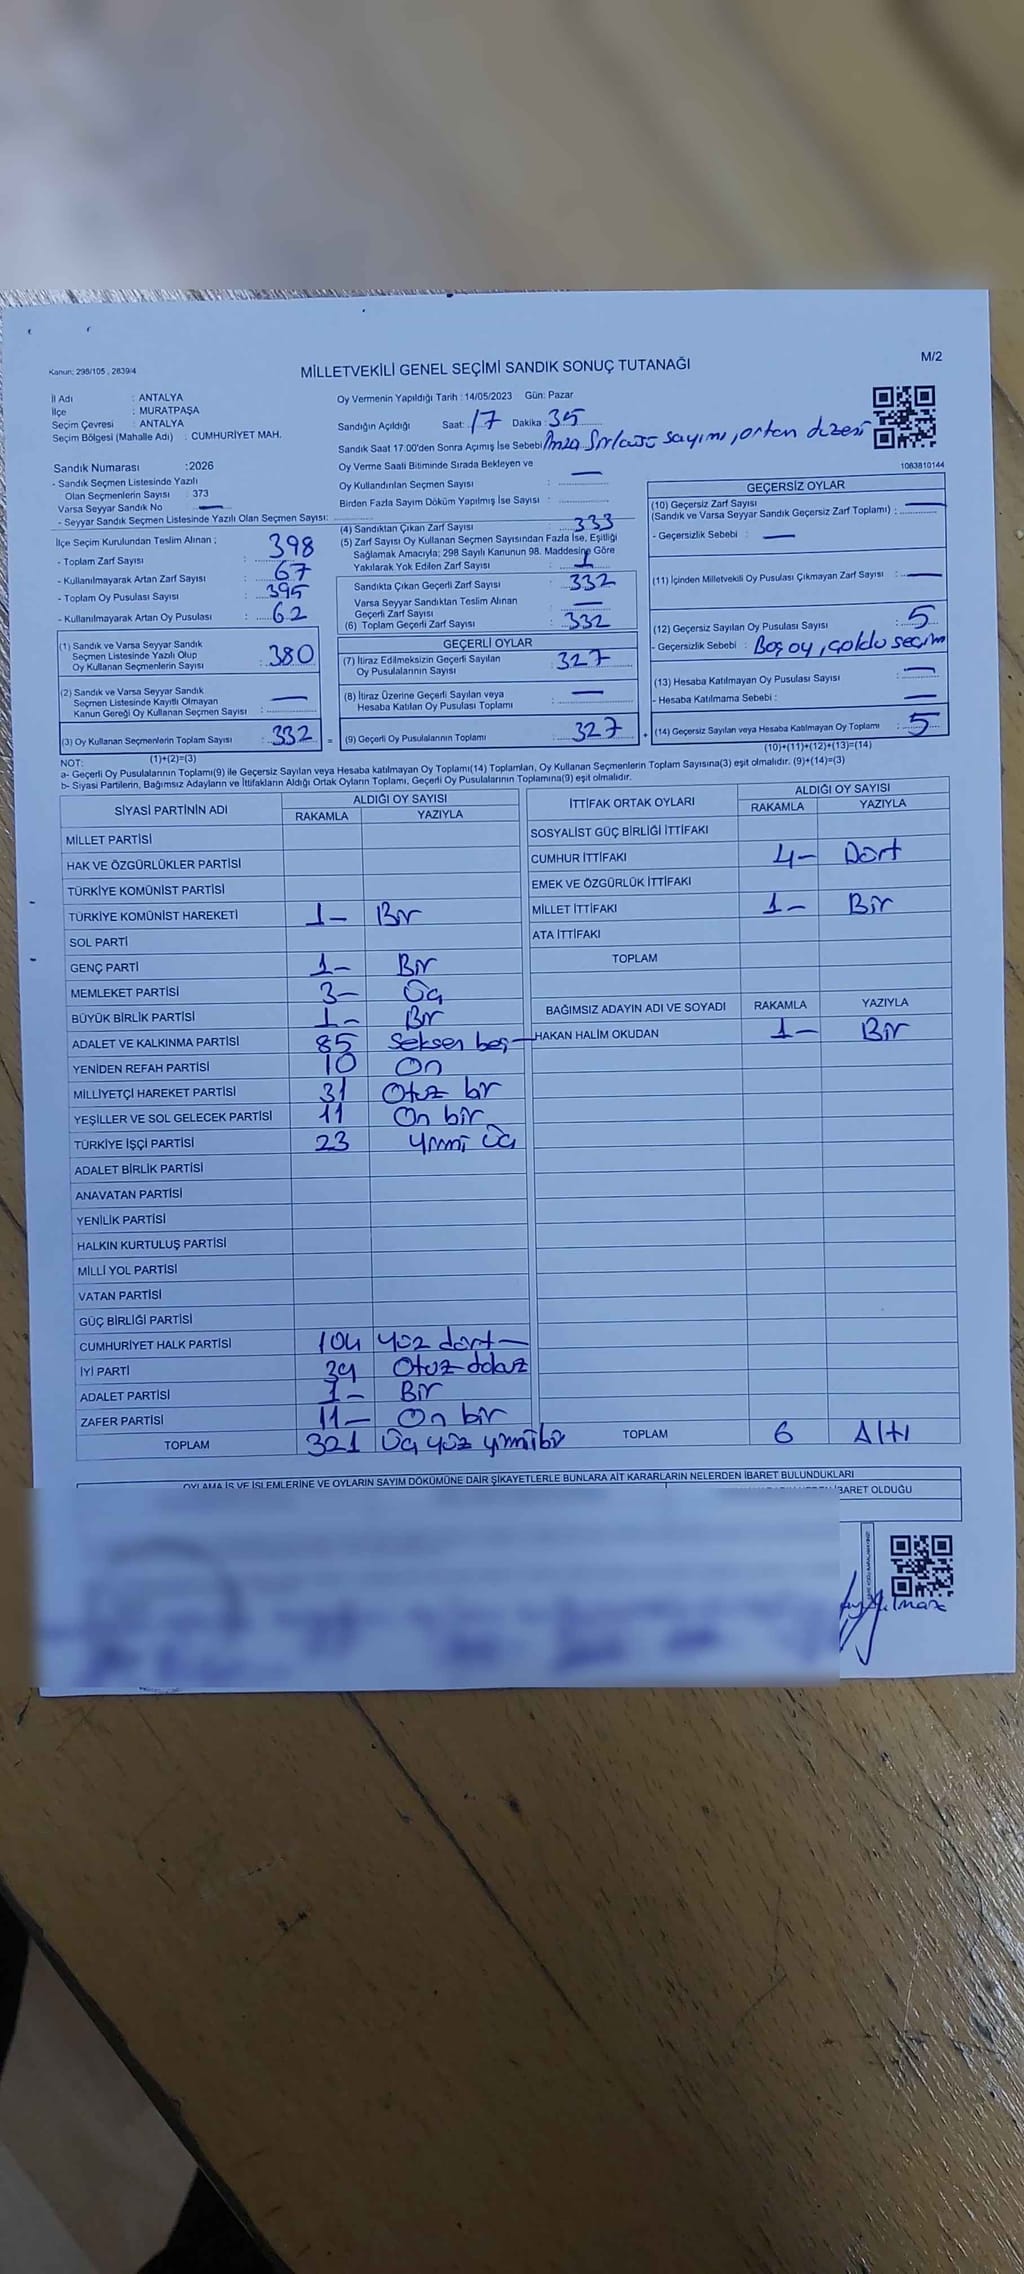 Kanun: 298/105 , 2839/4
MİLLETVEKİLİ GENEL SEÇİMİ SANDIK SONUÇ TUTANAĞI
M/2
İl Adı : ANTALYA
İlçe : MURATPAŞA
Seçim Çevresi : ANTALYA
Seçim Bölgesi (Mahalle Adı) : CUMHURİYET MAH.
Oy Vermenin Yapıldığı Tarih : 14/05/2023 Gün: Pazar
Sandığın Açıldığı Saat: 17 Dakika : 35
Sandık Saat 17.00'den Sonra Açımış İse Sebebi: İmza sayımı, ortam düzeni
1083810144
Sandık Numarası :2026
- Sandık Seçmen Listesinde Yazılı
Olan Seçmenlerin Sayısı : 373
Varsa Seyyar Sandık No —
- Seyyar Sandık Seçmen Listesinde Yazılı Olan Seçmen Sayısı:
İlçe Seçim Kurulundan Teslim Alınan ;
- Toplam Zarf Sayısı : 398
- Kullanılmayarak Artan Zarf Sayısı : 67
- Toplam Oy Pusulası Sayısı : 395
- Kullanılmayarak Artan Oy Pusulası : 62
(1) Sandık ve Varsa Seyyar Sandık
Seçmen Listesinde Yazılı Olup
Oy Kullanan Seçmenlerin Sayısı : 380
(2) Sandık ve Varsa Seyyar Sandık
Seçmen Listesinde Kayıtlı Olmayan
Kanun Gereği Oy Kullanan Seçmen Sayısı : —
(3) Oy Kullanan Seçmenlerin Toplam Sayısı : 332
Oy Verme Saati Bitiminde Sırada Bekleyen ve
Oy Kullandırılan Seçmen Sayısı : —
Birden Fazla Sayım Döküm Yapılmış İse Sayısı :
(4) Sandıktan Çıkan Zarf Sayısı : 333
(5) Zarf Sayısı Oy Kullanan Seçmen Sayısından Fazla İse, Eşitliği
Sağlamak Amacıyla; 298 Sayılı Kanunun 98. Maddesine Göre
Yakılarak Yok Edilen Zarf Sayısı : 1
Sandıkta Çıkan Geçerli Zarf Sayısı : 332
Varsa Seyyar Sandıktan Teslim Alınan
Geçerli Zarf Sayısı : —
(6) Toplam Geçerli Zarf Sayısı : 332
GEÇERLİ OYLAR
(7) İtiraz Edilmeksizin Geçerli Sayılan
Oy Pusulalarının Sayısı : 327
(8) İtiraz Üzerine Geçerli Sayılan veya
Hesaba Katılan Oy Pusulası Toplamı : —
= (9) Geçerli Oy Pusulalarının Toplamı : 327
GEÇERSİZ OYLAR
(10) Geçersiz Zarf Sayısı
(Sandık ve Varsa Seyyar Sandık Geçersiz Zarf Toplamı) : —
- Geçersizlik Sebebi : —
(11) İçinden Milletvekili Oy Pusulası Çıkmayan Zarf Sayısı : —
(12) Geçersiz Sayılan Oy Pusulası Sayısı : 5
- Geçersizlik Sebebi : Boş oy, çoklu seçim
(13) Hesaba Katılmayan Oy Pusulası Sayısı : —
- Hesaba Katılmama Sebebi : —
+ (14) Geçersiz Sayılan veya Hesaba Katılmayan Oy Toplamı : 5
NOT: (1)+(2)=(3)
(10)+(11)+(12)+(13)=(14)
a- Geçerli Oy Pusulalarının Toplamı(9) ile Geçersiz Sayılan veya Hesaba katılmayan Oy Toplamı(14) Toplamları, Oy Kullanan Seçmenlerin Toplam Sayısına(3) eşit olmalıdır. (9)+(14)=(3)
b- Siyasi Partilerin, Bağımsız Adayların ve İttifakların Aldığı Ortak Oyların Toplamı, Geçerli Oy Pusulalarının Toplamına(9) eşit olmalıdır.
SİYASİ PARTİNİN ADI ALDIĞI OY SAYISI
RAKAMLA YAZIYLA
MİLLET PARTİSİ
HAK VE ÖZGÜRLÜKLER PARTİSİ
TÜRKİYE KOMÜNİST PARTİSİ
TÜRKİYE KOMÜNİST HAREKETİ 1— Bir
SOL PARTİ
GENÇ PARTİ 1— Bir
MEMLEKET PARTİSİ 3— Üç
BÜYÜK BİRLİK PARTİSİ 1— Bir
ADALET VE KALKINMA PARTİSİ 85 Seksen beş—
YENİDEN REFAH PARTİSİ 10 On
MİLLİYETÇİ HAREKET PARTİSİ 31 Otuz bir
YEŞİLLER VE SOL GELECEK PARTİSİ 11 On bir
TÜRKİYE İŞÇİ PARTİSİ 23 Yirmi üç
ADALET BİRLİK PARTİSİ
ANAVATAN PARTİSİ
YENİLİK PARTİSİ
HALKIN KURTULUŞ PARTİSİ
MİLLİ YOL PARTİSİ
VATAN PARTİSİ
GÜÇ BİRLİĞİ PARTİSİ
CUMHURİYET HALK PARTİSİ 104 Yüz dört—
İYİ PARTİ 39 Otuz dokuz
ADALET PARTİSİ 1— Bir
ZAFER PARTİSİ 11— On bir
TOPLAM 321 Üç yüz yirmi bir
İTTİFAK ORTAK OYLARI ALDIĞI OY SAYISI
RAKAMLA YAZIYLA
SOSYALİST GÜÇ BİRLİĞİ İTTİFAKI
CUMHUR İTTİFAKI 4— Dört
EMEK VE ÖZGÜRLÜK İTTİFAKI
MİLLET İTTİFAKI 1— Bir
ATA İTTİFAKI
TOPLAM
BAĞIMSIZ ADAYIN ADI VE SOYADI RAKAMLA YAZIYLA
HAKAN HALİM OKUDAN 1— Bir
TOPLAM 6 Altı
OYLAMA İŞ VE İŞLEMLERİNE VE OYLARIN SAYIM DÖKÜMÜNE DAİR ŞİKAYETLERLE BUNLARA AİT KARARLARIN NELERDEN İBARET BULUNDUKLARI
İBARET OLDUĞU